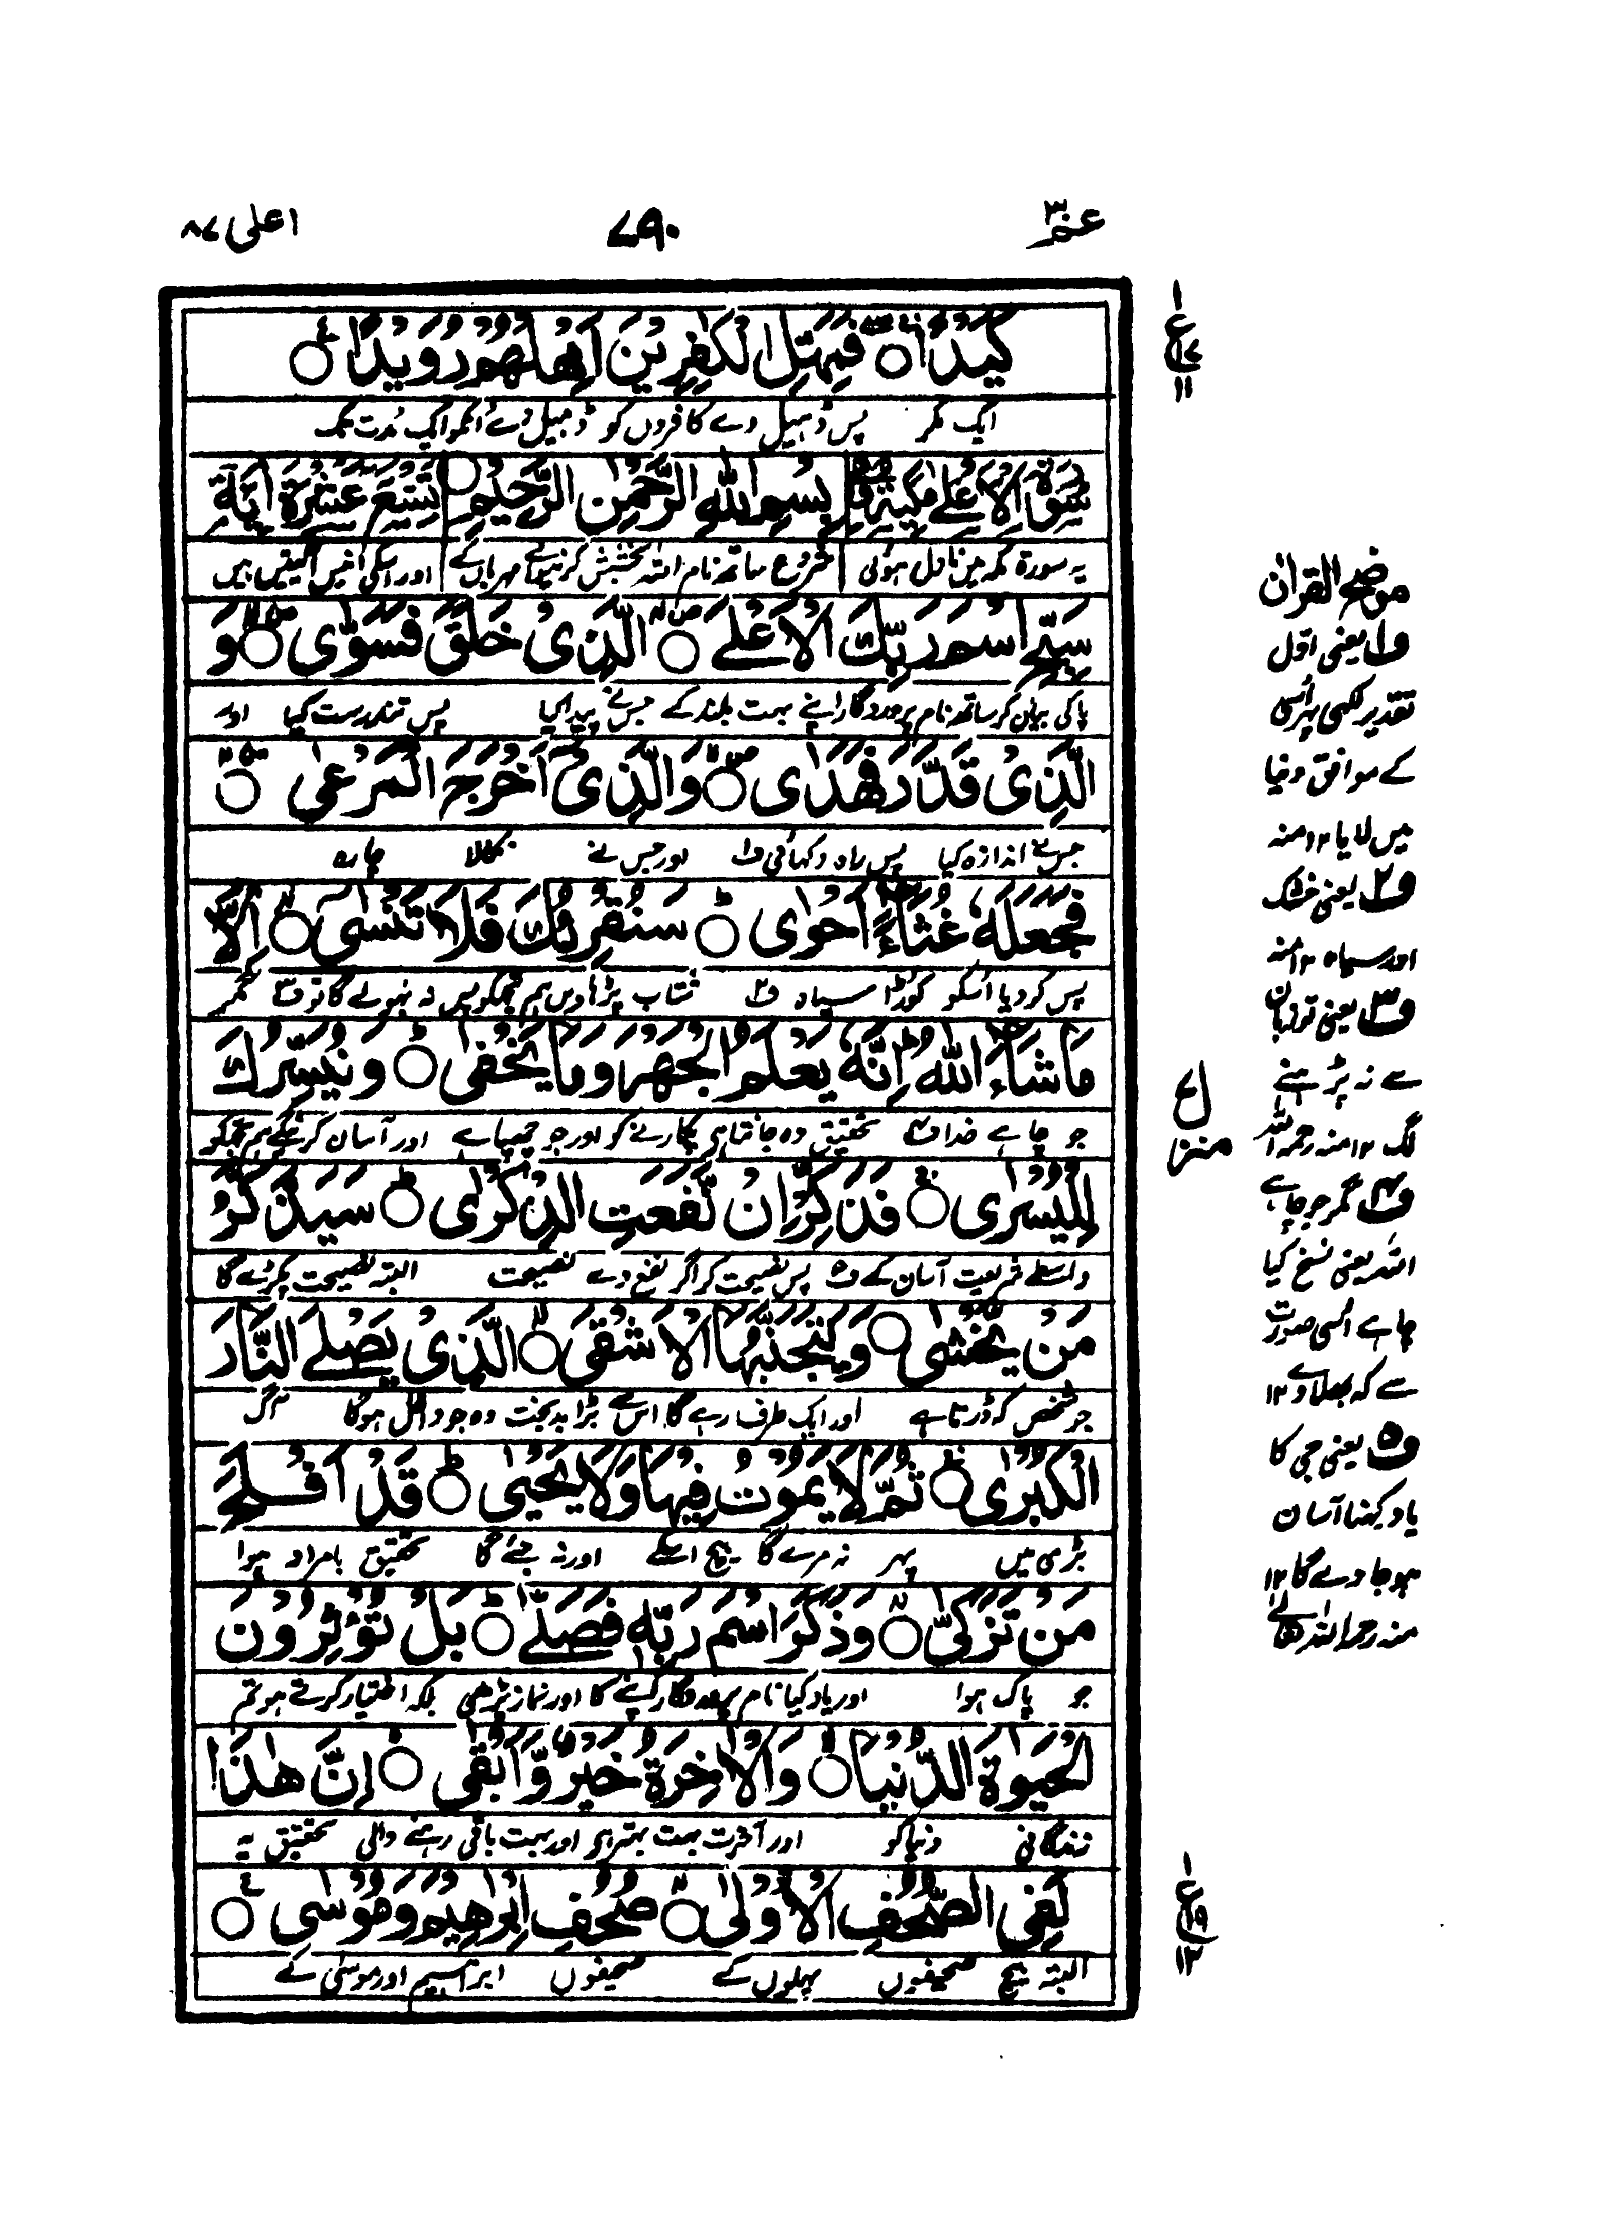 عم ۳۰
۷۹۰
اعلی ۸۷
كَيْدًا ۝ فَمَهِّلِ الْكٰفِرِيْنَ اَمْهِلْهُمْ رُوَيْدًا ۝
ایک مکر پس ڈھیل دے کافروں کو ڈھیل دے انکو ایک مدت تک
سُوْرَةُ الْاَعْلٰى مَكِّيَّةٌ بِسْمِ اللّٰهِ الرَّحْمٰنِ الرَّحِيْمِ ۝ تِسْعَ عَشَرَةَ اٰيَةً
یہ سورة مکہ میں نازل ہوئی شروع ساتھ نام اللہ بخشش کرنیوالے مہربان کے اور اسکی انیس آیتیں ہیں
سَبِّحِ اسْمَ رَبِّكَ الْاَعْلَى ۝ الَّذِيْ خَلَقَ فَسَوّٰى ۝ وَ
پاکی بیان کر ساتھ نام پروردگار اپنے بہت بلند کے جس نے پیدا کیا پس تندرست کیا اور
الَّذِيْ قَدَّرَ فَهَدٰى ۝ وَالَّذِيْٓ اَخْرَجَ الْمَرْعٰى ۝
جس نے اندازہ کیا پس راہ دکھائی ف۱ اور جس نے نکالا چارہ
فَجَعَلَهٗ غُثَآءً اَحْوٰى ۝ سَنُقْرِئُكَ فَلَا تَنْسٰٓى ۝ اِلَّا
پس کر دیا اسکو کوڑا سیاہ ف۲ شتاب پڑھاویں ہم تجھکو پس نہ بھولے گا تو ف۳ مگر
مَا شَآءَ اللّٰهُ اِنَّهٗ يَعْلَمُ الْجَهْرَ وَمَا يَخْفٰى ۝ وَنُيَسِّرُكَ
جو چاہے خدا ف۴ تحقیق وہ جانتا ہے پکارنے کو اور جو چھپا ہے اور آسان کریں گے ہم تجھکو
لِلْيُسْرٰى ۝ فَذَكِّرْ اِنْ نَّفَعَتِ الذِّكْرٰى ۝ سَيَذَّكَّرُ
واسطے شریعت آسان کے ف۵ پس نصیحت کر اگر نفع دے نصیحت البتہ نصیحت پکڑے گا
مَنْ يَّخْشٰى ۝ وَيَتَجَنَّبُهَا الْاَشْقَى ۝ الَّذِيْ يَصْلَى النَّارَ
جو شخص کہ ڈرتا ہے اور ایک طرف رہے گا اس سے بڑا بدبخت وہ جو داخل ہوگا آگ
الْكُبْرٰى ۝ ثُمَّ لَا يَمُوْتُ فِيْهَا وَلَا يَحْيٰى ۝ قَدْ اَفْلَحَ
بڑی میں پھر نہ مرے گا بیچ اسکے اور نہ جئے گا تحقیق بامراد ہوا
مَنْ تَزَكّٰى ۝ وَذَكَرَ اسْمَ رَبِّهٖ فَصَلّٰى ۝ بَلْ تُؤْثِرُوْنَ
جو پاک ہوا اور یاد کیا نام پروردگار اپنے کا اور نماز پڑھی بلکہ اختیار کرتے ہو تم
الْحَيٰوةَ الدُّنْيَا ۝ وَالْاٰخِرَةُ خَيْرٌ وَّاَبْقٰى ۝ اِنَّ هٰذَا
زندگانی دنیا کو اور آخرت بہت بہتر ہے اور بہت باقی رہنے والی تحقیق یہ
لَفِي الصُّحُفِ الْاُوْلٰى ۝ صُحُفِ اِبْرٰهِيْمَ وَمُوْسٰى ۝
البتہ بیچ صحیفوں پہلوں کے صحیفوں ابراہیم اور موسیٰ کے
۱
ع
۱۷
۱۱
موضح القرآن
ف۱ یعنی اول
تقدیر لکھی پھر اسی
کے موافق دنیا
میں لایا ۱۲ منہ
ف۲ یعنی خشک
اور سیاہ ۱۲ منہ
ف۳ یعنی قرآن
سے نہ پڑھنے
لگ ۱۲ منہ رحمہ اللہ
ف۴ مگر جو چاہے
اللہ یعنی نسخ کیا
چاہے اسی صورت
سے کہ بھلا دے ۱۲
ف۵ یعنی وحی کا
یاد رکھنا آسان
ہو جاوے گا ۱۲
منہ رحمہ اللہ تعالیٰ
منزل ۷
۱
ع
۱۹
۱۲